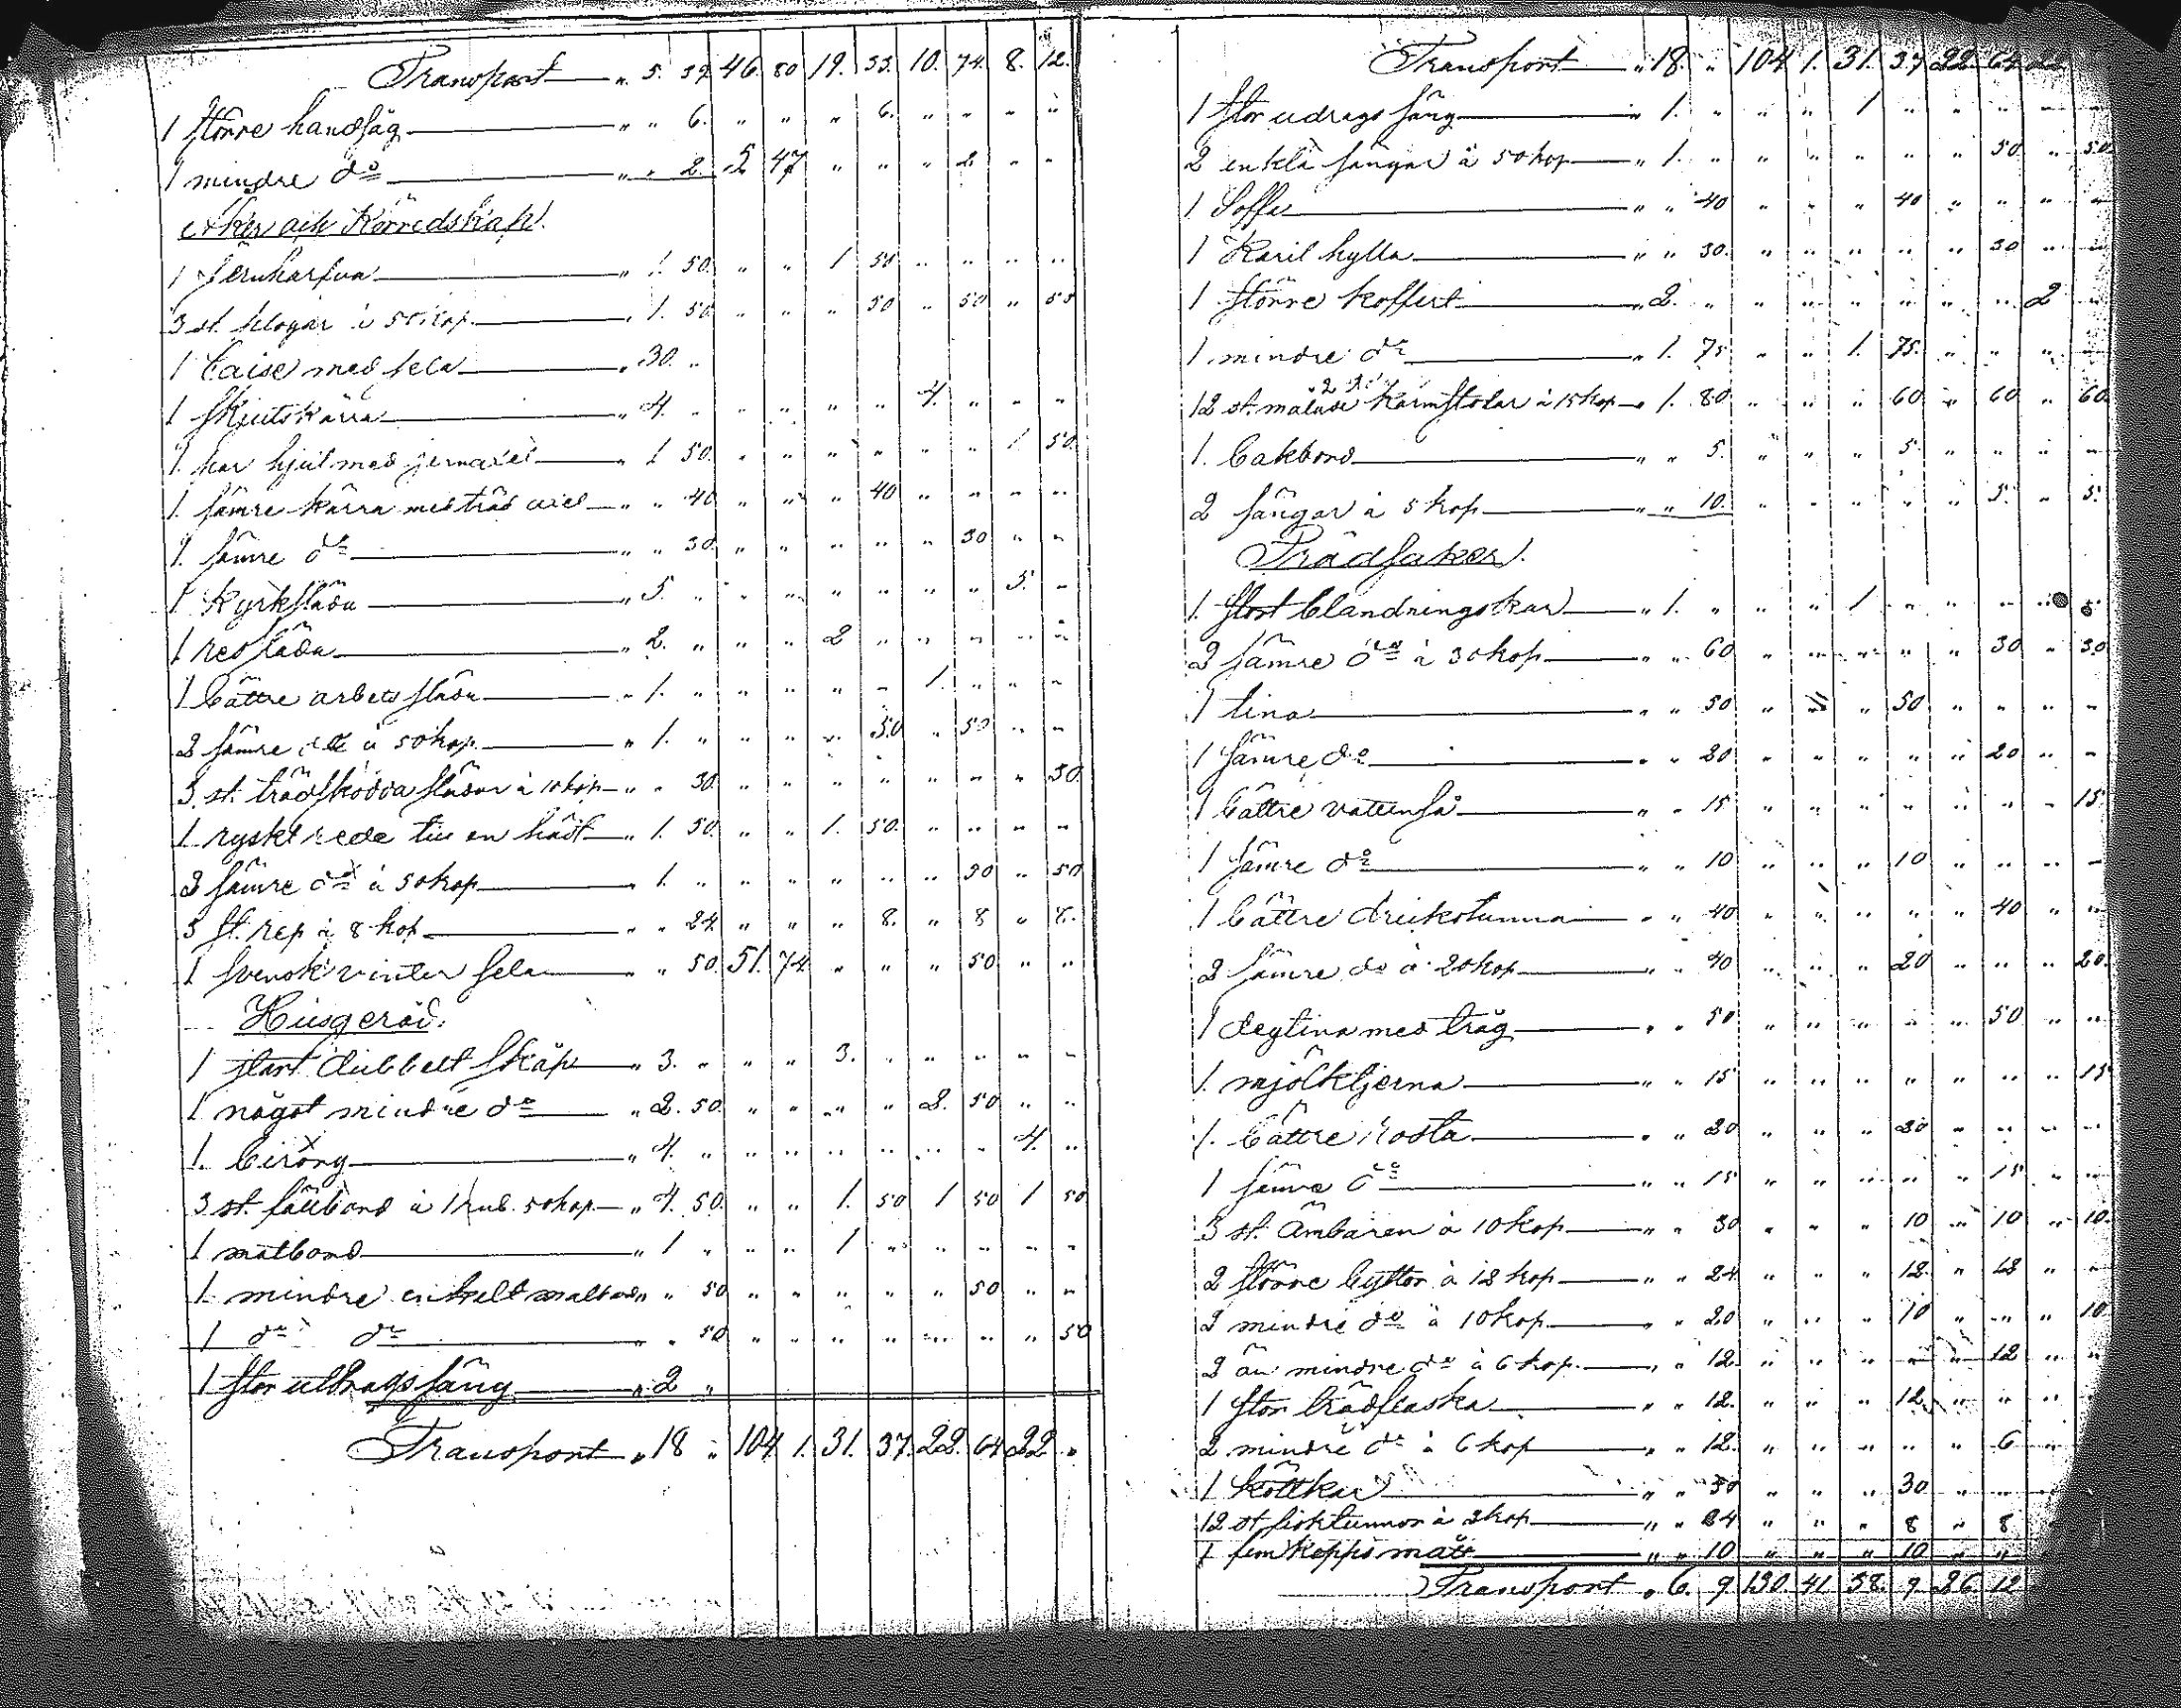 Transport „ 5. 39. 46. 80 19. 33. 10. 74. 8. 12.
1 större handsåg „ „ 6. „ „ „ 6. „ „ „ „
1 mindre do „ „ 2. 5 47 „ „ „ 2 „ „
Åker och Körredskap.
1 jernharfva „ 1. 50. „ „ 1 50 „ „ „ „
3 st. plogar à 50 kop. „ 1. 50 „ „ „ 50 „ 50 „ 50
1 Caise med sela „ 30. „
1 Skjutskärra „ 4. „ „ „ „ „ 4. „ „ „
1. par hjul med jernaxel „ 1 50. „ „ „ „ „ „ 1 50.
1. sämre kärra med träd axel „ „ 40 „ „ „ 40 „ „ „ „
1. sämre do „ „ 30. „ „ „ „ „ 30 „ „
1 Kyrksläda „ 5. „ „ „ „ „ „ „ 5. „
1 ressläda „ 2. „ „ „ 2 „ „ „ „ „
1 bättre arbetssläda „ 1. „ „ „ „ „ 1. „ „ „
2 sämre do à 50 kop. „ 1. „ „ „ „ 50 „ 50 „ „
3. st. trädskodda slädar à 10 kop „ „ 30. „ „ „ „ „ „ „ 30.
1 ryskt rede till en häst „ 1. 50. „ „ 1. 50. „ „ „ „
2 sämre do à 50 kop „ 1. „ „ „ „ „ „ 50 „ 50
3 st. rep à 8 kop „ „ 24. „ „ „ 8. „ 8 „ 8.
1 svensk vinter sela „ „ 50. 51. 74. „ „ „ 50 „ „
Husgeråd.
1 stort dubbelt skåp „ 3. „ „ „ 3. „ „ „ „ „
1 något mindre do „ 2. 50. „ „ „ „ 2. 50 „ „
1. Cirong „ 4. „ „ „ „ „ „ „ 4. „
3 st. fällbord à 1 rub. 50 kop. „ 4. 50. „ „ 1. 50 1 50 1 50
1 matbord „ 1 „ „ „ 1 „ „ „ „ „
1. mindre enkelt matbord „ „ 50 „ „ „ „ „ 50 „ „
1 do do „ „ 50 „ „ „ „ „ „ „ 50
1 stor utdragssäng „ 2 „
Transport „ 18 „ 104. 1. 31. 37. 22. 64. 22 „
Transport „ 18. „ 104 1. 31. 37 22. 64
1 stor udrags säng „ 1. „ „ „ 1 „ „ „ „ „
2 enkla sängar à 50 kop „ 1. „ „ „ „ „ „ 50 „ 50.
1 Soffa „ „ 40 „ „ „ 40 „ „ „ „
1 Käril hylla „ „ 30. „ „ „ „ „ 30 „ „
1 större koffert „ 2. „ „ „ „ „ „ „ 2 „
1 mindre do „ 1. 75 „ „ 1. 75. „ „ „ „
12 st. målade karmstolar à 15 kop „ 1. 80. „ „ „ 60. „ 60 „ 60.
1. bakbord „ „ 5. „ „ „ 5. „ „ „ „
2 sängar à 5 kop „ „ 10. „ „ „ „ „ 5. „ 5.
Trädsaker.
1. stort blandningskar „ 1. „ „ „ 1 „ „ „ „
2 sämre do à 30 kop „ „ 60 „ „ „ „ „ 30 „ 30
1 tina „ „ 50 „ „ „ 50 „ „ „ „
1 sämre do „ „ 20 „ „ „ „ „ 20 „ „
1 bättre vattenså „ „ 15 „ „ „ „ „ „ „ 15.
1 sämre do „ „ 10 „ „ „ 10 „ „ „ „
1 bättre drickstunna „ „ 40 „ „ „ „ „ 40 „ „
2 sämre do à 20 kop „ „ 40 „ „ „ 20 „ „ „ 20.
1 degtina med tråg „ „ 50 „ „ „ „ „ 50 „ „
1. mjölktjerna „ „ 15 „ „ „ „ „ „ „ 15
1. bättre rosta „ „ 20 „ „ „ 20 „ „ „ „
1 sämre do „ „ 15 „ „ „ „ „ 15 „ „
3 st. Ämbaren à 10 kop „ „ 30 „ „ „ 10 „ 10 „ 10.
2 större byttor à 12 kop „ „ 24 „ „ „ 12. „ 12 „ „
2 mindre do à 10 kop „ „ 20 „ „ „ 10 „ „ „ 10
2 än mindre do à 6 kop. „ „ 12. „ „ „ „ „ 12 „ „
1 stor trädflaska „ „ 12. „ „ „ 12 „ „ „ „
2 mindre do à 6 kop „ „ 12. „ „ „ „ „ 6 „
1 köttkar „ „ 30 „ „ „ 30 „ „
12 st fisktunnor à 2 kop „ „ 24 „ „ „ 8 „ 8
1 fem kappes mått „ „ 10 „ „ „ 10 „ „
Transport „ 6. 9 130. 41 38. 9 26. 12